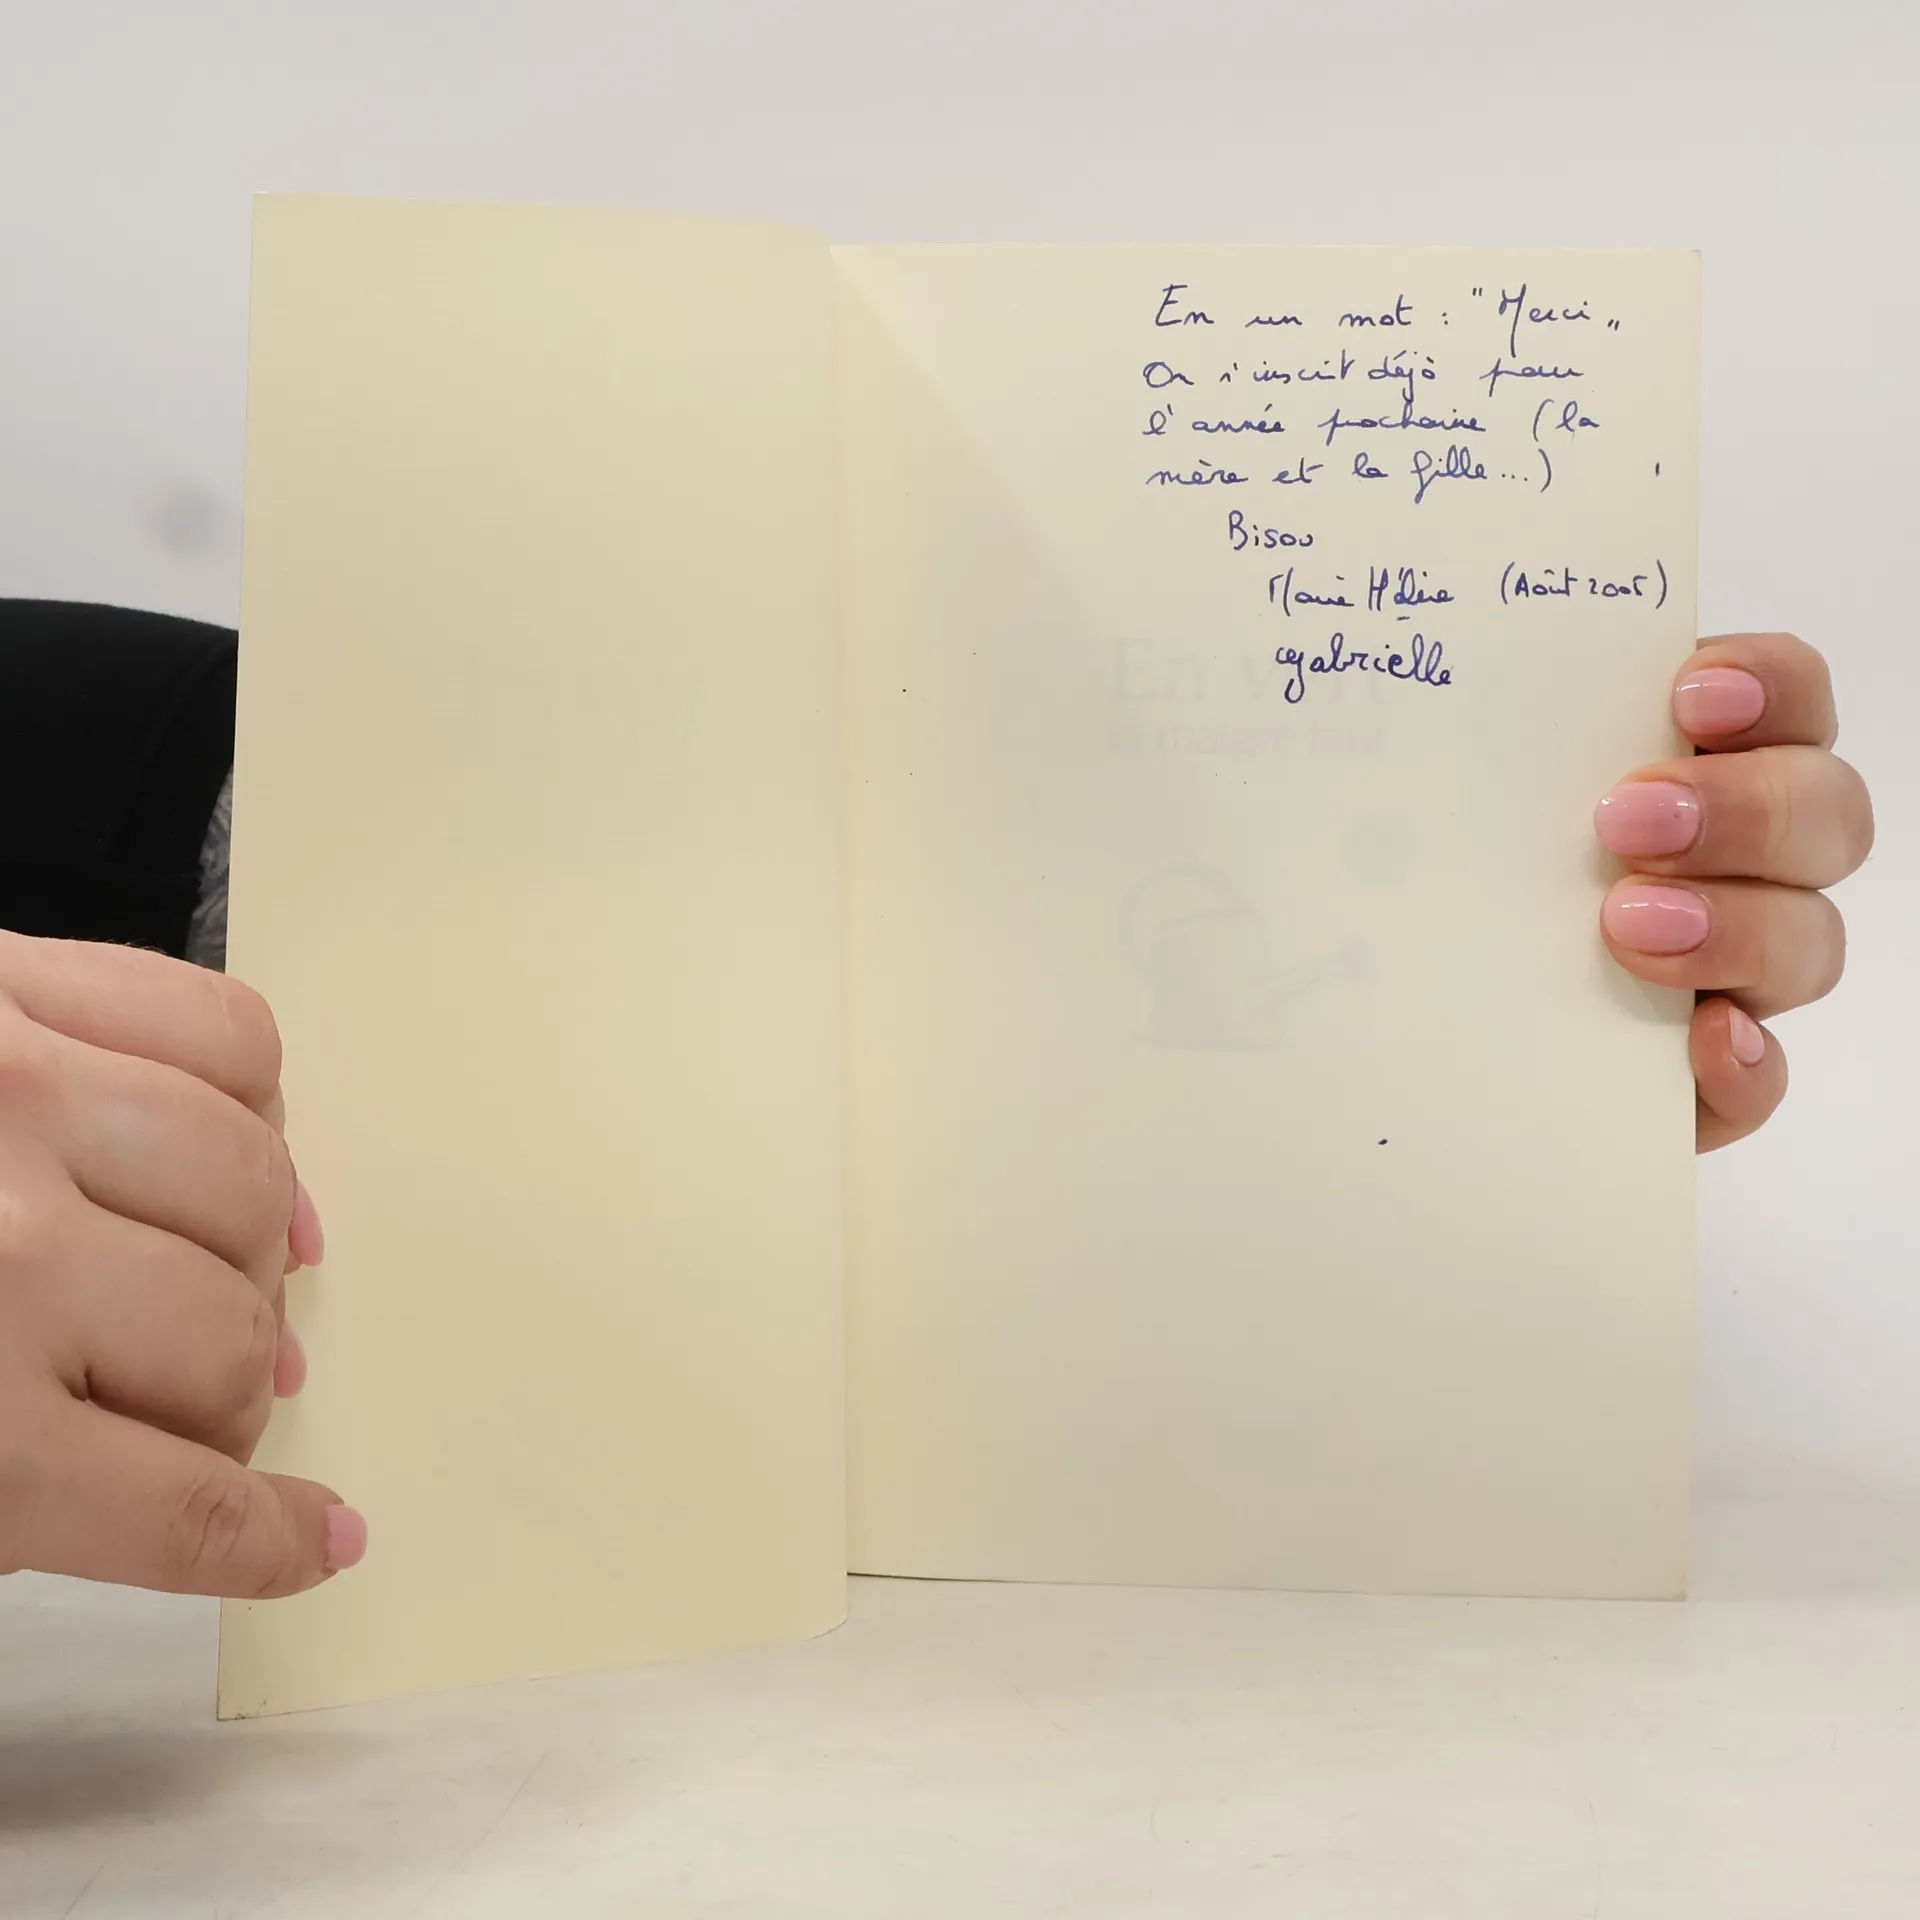 En un mot : "Merci"
On s'inscrit déjà pour
l'année prochaine (la
mère et la fille...)
Bisou
Marie Hélène (Août 2005)
Gabrielle
En vert
et malgré tout